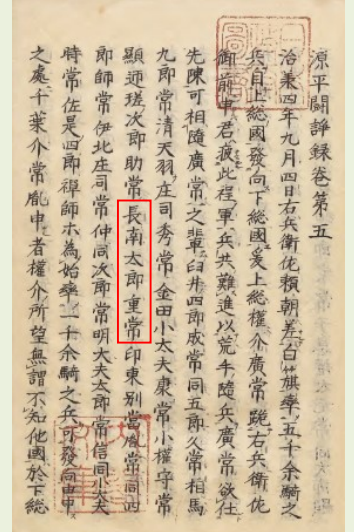 源平闘諍録巻第五
治兼四年九月四日右兵衛佐頼朝差白旗率五千余騎之
兵自上総國發向下総國爰上総權介廣常跪右兵衛佐
御前申君疲此程軍兵共難進以荒手随兵廣常欲仕
先陳可相隨廣常之輩臼井四郎成常同五郎久常相馬
九郎常清天羽庄司秀常金田小大夫康常小權守常
顕迊瑳次郎助常長南太郎重常印東別當胤常同四
郎師常伊北庄司常仲同次郎常明大夫太郎常信同小大夫
時常佐是四郎禅師木為始率一千余騎之兵可發向由申
之處千葉介常胤申者權介所望無謂不知他國於下総